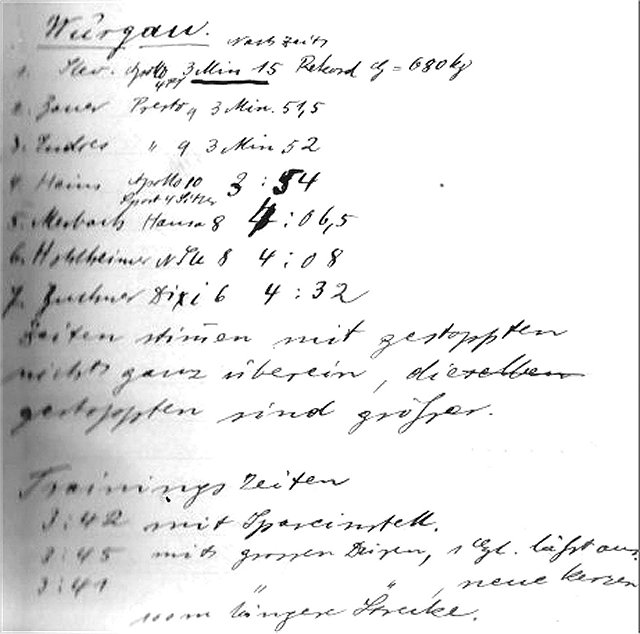 Würgau.
Nach Zeit
1. Slev. Apollo 3 Min 15 Rekord G = 680 kg
4 PS
2. Zauer Presto 9 3 Min. 51,5
3. Endres " 9 3 Min 52
4. Hains Apollo 10 3 : 54
Sport 4 Sitzer
5. Merbach Hansa 8 4 : 06,5
6. Hohlheimer NSU 8 4 : 08
7. Zuchner Dixi 6 4 : 32
Zeiten stimen mit gestoppten
nicht ganz überein, dieselben
gestoppten sind größer.
Trainings Zeiten
3:42 mit Spareinstell.
3:45 mit grossen Düsen, vgl. läßt aus.
3:41 " " , neue Kerzen
vom längere Strecke.